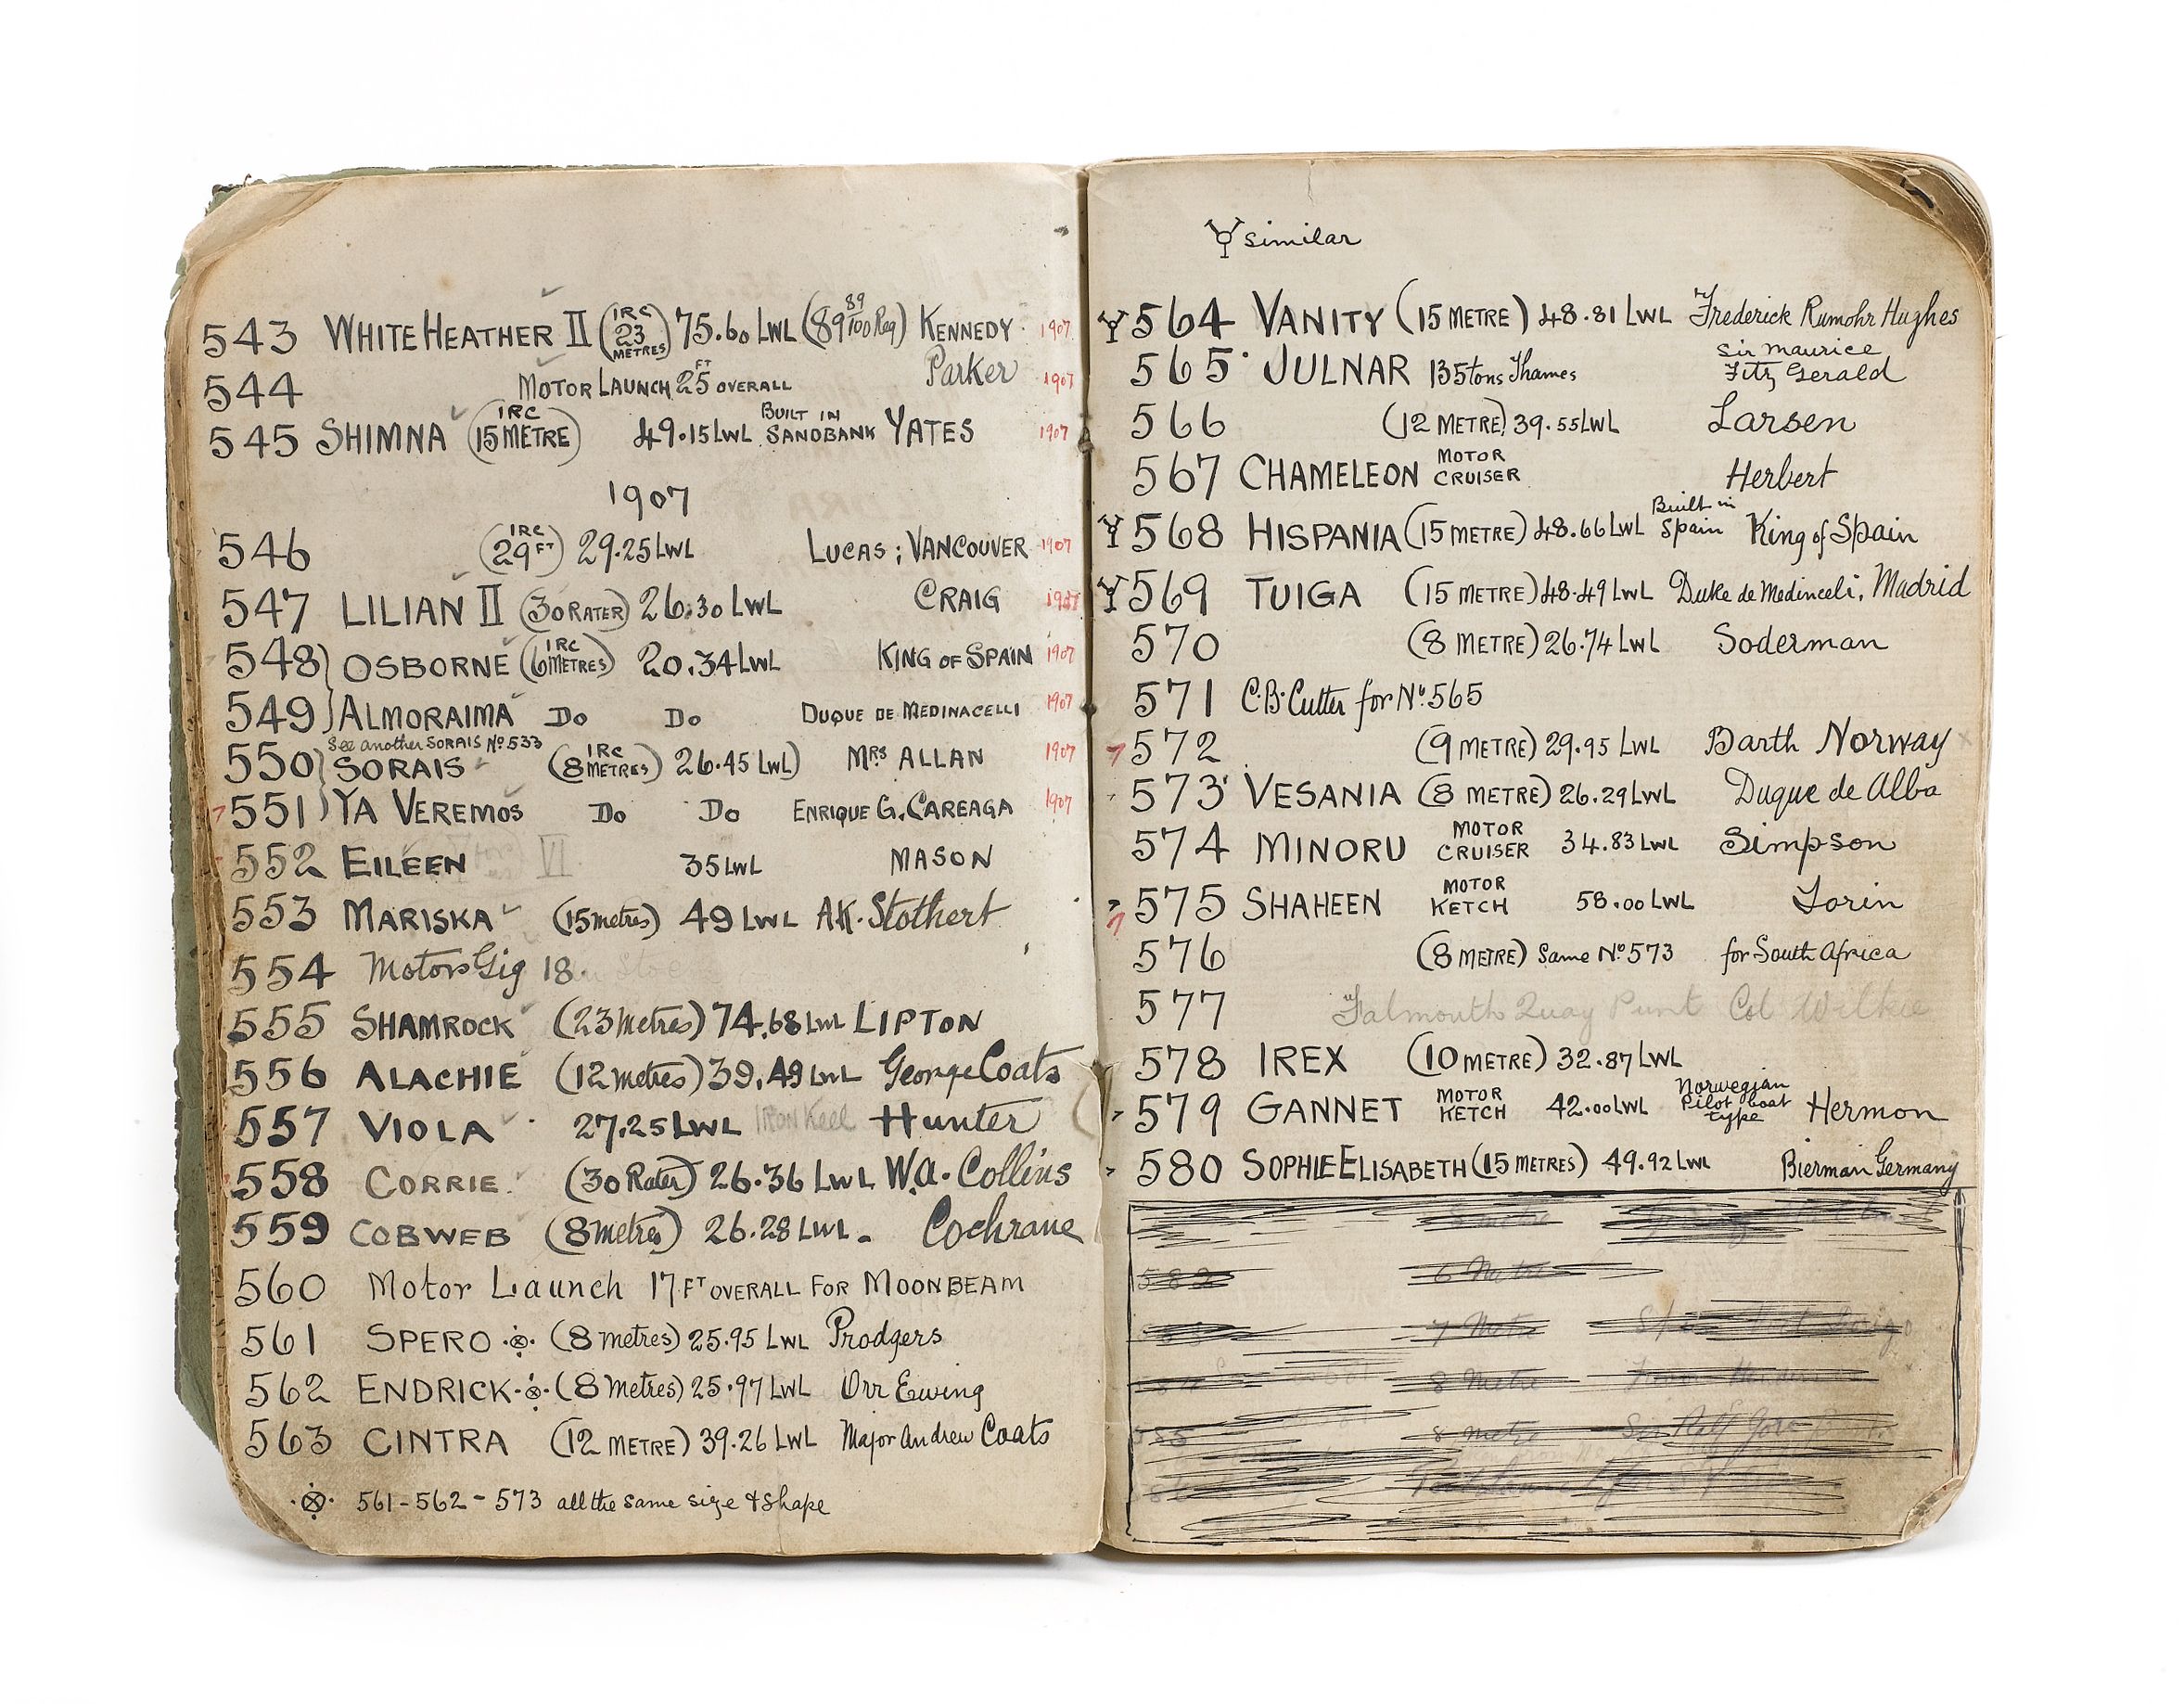 543 WHITE HEATHER II (IRC 23 METRES) 75.60 LWL (89 89/100 Reg) KENNEDY 1907
544 MOTOR LAUNCH 25 FT OVERALL Parker 1907
545 SHIMNA (IRC 15 METRE) 49.15 LWL BUILT IN SANDBANK YATES 1907
1907
546 (IRC 29 FT) 29.25 LWL LUCAS; VANCOUVER 1907
547 LILIAN II (30 RATER) 26.30 LWL CRAIG 1907
548 OSBORNE (IRC 6 METRES) 20.34 LWL KING OF SPAIN 1907
549 ALMORAIMA Do Do DUQUE DE MEDINACELLI 1907
See another SORAIS No 533
550 SORAIS (IRC 8 METRES) 26.45 LWL) MRS ALLAN 1907
551 YA VEREMOS Do Do ENRIQUE G. CAREAGA 1907
552 EILEEN VI 35 LWL MASON
553 MARISKA (15 metres) 49 LWL A.K. Stothert
554 Motor Gig 18.
555 SHAMROCK (23 Metres) 74.68 LWL LIPTON
556 ALACHIE (12 metres) 39.49 LWL George Coats
557 VIOLA 27.25 LWL IRON Keel Hunter
558 CORRIE (30 Rater) 26.36 LWL W.A. Collins
559 COBWEB (8 metres) 26.28 LWL. Cochrane
560 Motor Launch 17 FT OVERALL FOR MOONBEAM
561 SPERO (8 metres) 25.95 LWL Prodgers
562 ENDRICK (8 Metres) 25.97 LWL Orr Ewing
563 CINTRA (12 METRE) 39.26 LWL Major Andrew Coats
561 - 562 - 573 all the same size & shape
similar
564 VANITY (15 METRE) 48.81 LWL Frederick Rumohr Hughes
565 JULNAR 135 tons Thames Sir Maurice Fitz Gerald
566 (12 METRE) 39.55 LWL Larsen
567 CHAMELEON MOTOR CRUISER Herbert
568 HISPANIA (15 METRE) 48.66 LWL Built in Spain King of Spain
569 TUIGA (15 METRE) 48.49 LWL Duke de Medinceli, Madrid
570 (8 METRE) 26.74 LWL Soderman
571 C.B. Cutter for No. 565
572 (9 METRE) 29.95 LWL Barth Norway
573 VESANIA (8 METRE) 26.29 LWL Duque de Alba
574 MINORU MOTOR CRUISER 34.83 LWL Simpson
575 SHAHEEN MOTOR KETCH 58.00 LWL Lorin
576 (8 METRE) Same No 573 for South Africa
577 Falmouth Quay Punt Col Wilkie
578 IREX (10 METRE) 32.87 LWL
579 GANNET MOTOR KETCH 42.00 LWL Norwegian Pilot boat type Hermon
580 SOPHIE ELISABETH (15 METRES) 49.92 LWL Bierman Germany
582 6 Metre
7 Metre
8 Metre
585 8 metre